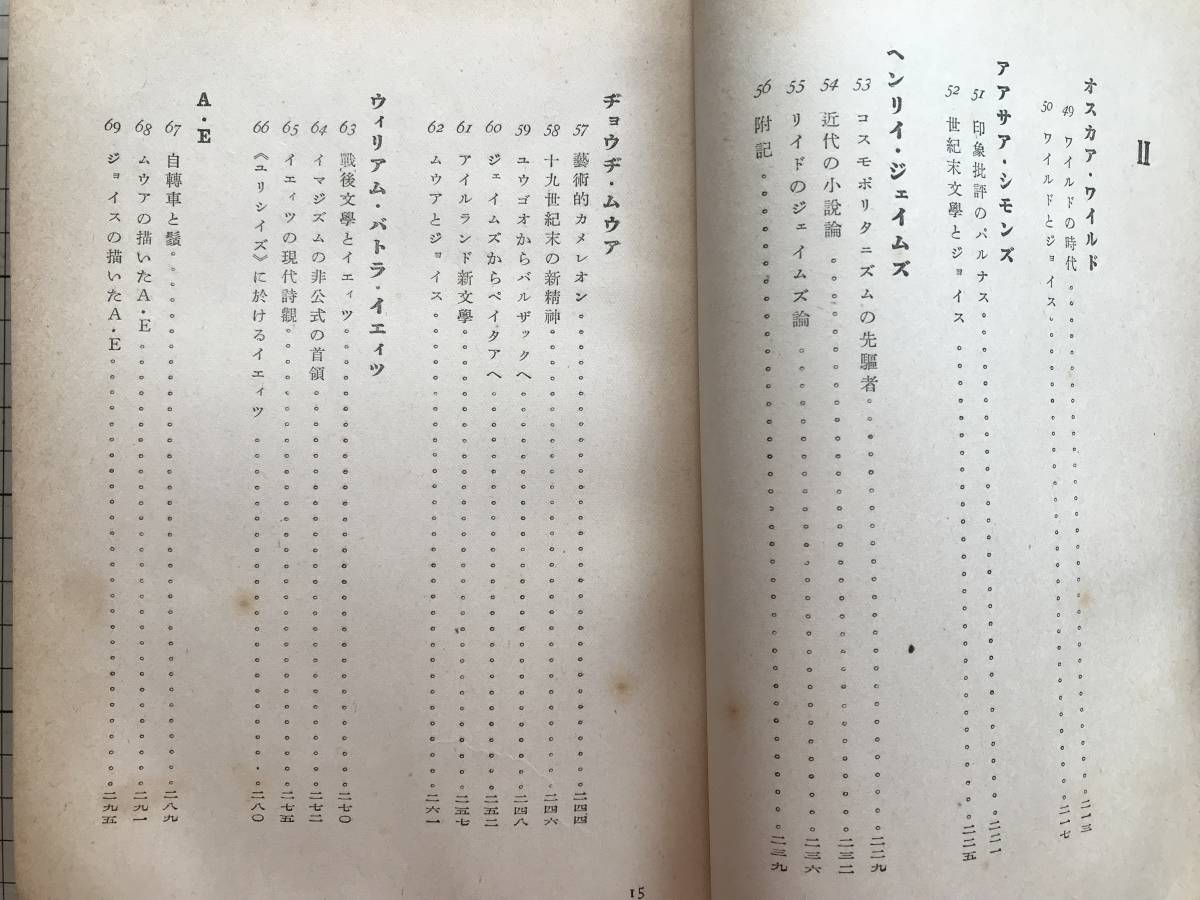 II
オスカア・ワイルド
49 ワイルドの時代。。。。。。。。。。二一三
50 ワイルドとジョイス。。。。。。。。。。二一七
アアサア・シモンズ
51 印象批評のパルナス。。。。。。。。。。二二一
52 世紀末文學とジョイス。。。。。。。。。。二二五
ヘンリイ・ジェイムズ
53 コスモポリタニズムの先驅者。。。。。。。。。。二二九
54 近代の小說論。。。。。。。。。。二三二
55 リイドのジェイムズ論。。。。。。。。。。二三六
56 附記。。。。。。。。。。二三九
ヂョウヂ・ムウア
57 藝術的カメレオン。。。。。。。。。。二四四
58 十九世紀末の新精神。。。。。。。。。。二四六
59 ユウゴオからバルザックへ。。。。。。。。。。二四八
60 ジェイムズからペイタアへ。。。。。。。。。。二五二
61 アイルランド新文學。。。。。。。。。。二五七
62 ムウアとジョイス。。。。。。。。。。二六一
ウィリアム・バトラ・イエィツ
63 戰後文學とイエィツ。。。。。。。。。。二七〇
64 イマジズムの非公式の首領。。。。。。。。。。二七二
65 イエィツの現代詩觀。。。。。。。。。。二七五
66 《ユリシイズ》に於けるイエィツ。。。。。。。。。。二八〇
A・E
67 自轉車と鬚。。。。。。。。。。二八九
68 ムウアの描いたA・E。。。。。。。。。。二九一
69 ジョイスの描いたA・E。。。。。。。。。。二九五
15